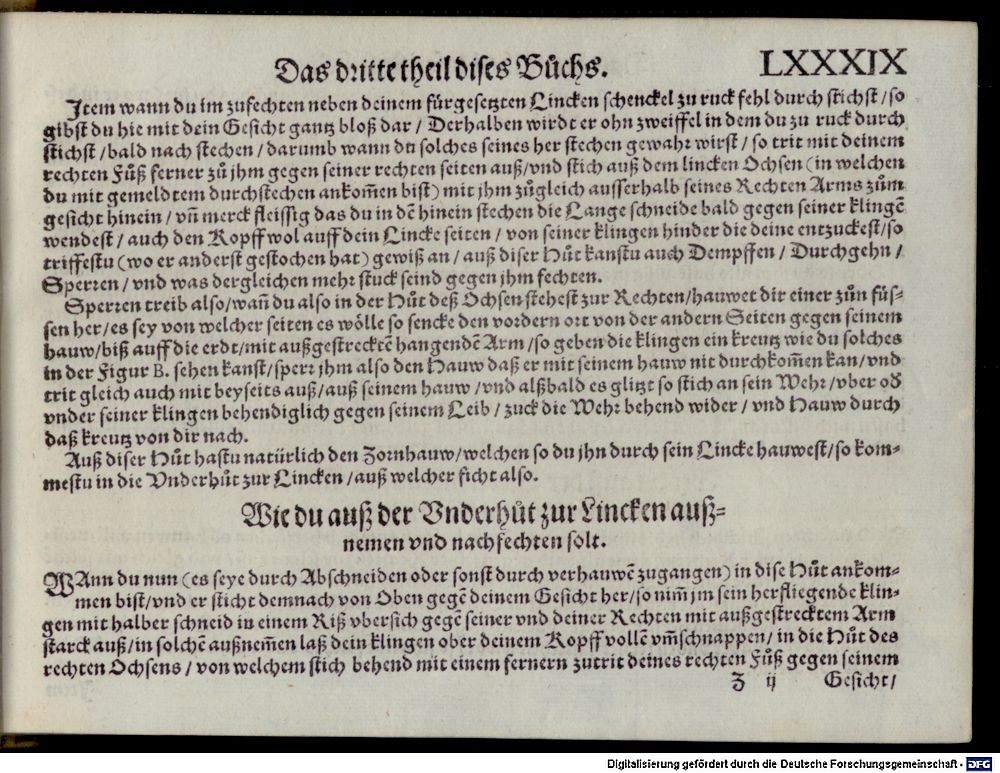 Das dritte theil dises Bůchs.
LXXXIX
Item wann du im zufechten neben deinem fürgesetzten Lincken schenckel zu ruck fehl durch stichst / so
gibst du hie mit dein Gesicht gantz bloß dar / Derhalben wirdt er ohn zweiffel in dem du zu ruck durch
stichst / bald nach stechen / darumb wann du solches seines her stechen gewahr wirst / so trit mit deinem
rechten Fůß ferner zů jhm gegen seiner rechten seiten auß / vnd stich auß dem lincken Ochsen (in welchen
du mit gemeldtem durchstechen ankom̃en bist) mit jhm zůgleich ausserhalb seines Rechten Arms zům
gesicht hinein / vñ merck fleissig das du in dẽ hinein stechen die Lange schneide bald gegen seiner klingẽ
wendest / auch den Kopff wol auff dein Lincke seiten / von seiner klingen hinder die deine entzuckest / so
triffestu (wo er anderst gestochen hat) gewiß an / auß diser Hůt kanstu auch Dempffen / Durchgehn /
Sperren / vnd was dergleichen mehr stuck seind gegen jhm fechten.
Sperren treib also / wañ du also in der Hůt deß Ochsen stehest zur Rechten / hauwet dir einer zůn füs-
sen her / es sey von welcher seiten es wölle so sencke den vordern ort von der andern Seiten gegen seinem
hauw / biß auff die erdt / mit außgestrecktẽ hangendẽ Arm / so geben die klingen ein kreutz wie du solches
in der Figur B. sehen kanst / sperr jhm also den Hauw daß er mit seinem hauw nit durchkom̃en kan / vnd
trit gleich auch mit beyseits auß / auß seinem hauw / vnd alßbald es glitzt so stich an sein Wehr / vber od̃
vnder seiner klingen behendiglich gegen seinem Leib / zuck die Wehr behend wider / vnd Hauw durch
daß kreutz von dir nach.
Auß diser Hůt hastu natürlich den Zornhauw / welchen so du jhn durch sein Lincke hauwest / so kom-
mestu in die Vnderhůt zur Lincken / auß welcher ficht also.
Wie du auß der Vnderhůt zur Lincken auß-
nemen vnd nachfechten solt.
WAnn du nun (es seye durch Abschneiden oder sonst durch verhauwẽ zugangen) in dise Hůt ankom-
men bist / vnd er sticht demnach von Oben gegẽ deinem Gesicht her / so nim̃ jm sein herfliegende klin-
gen mit halber schneid in einem Riß vbersich gegẽ seiner vnd deiner Rechten mit außgestrecktem Arm
starck auß / in solchẽ außnem̃en laß dein klingen ober deinem Kopff vollẽ vm̃schnappen / in die Hůt des
rechten Ochsens / von welchem stich behend mit einem fernern zutrit deines rechten Fůß gegen seinem
Z ij Gesicht /
Digitalisierung gefördert durch die Deutsche Forschungsgemeinschaft - DFG